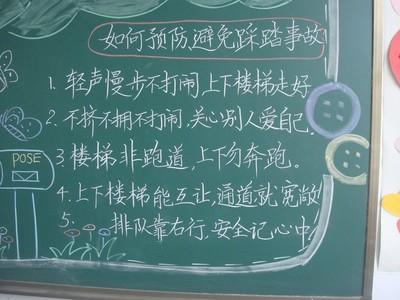 如何预防、避免踩踏事故
1. 轻声慢步不打闹,上下楼梯走好
2. 不挤不拥不打闹,关心别人爱自己.
3 楼梯非跑道,上下勿奔跑。
4.上下楼梯能互让,通道就宽敞
5. 排队靠右行,安全记心中!
POSE